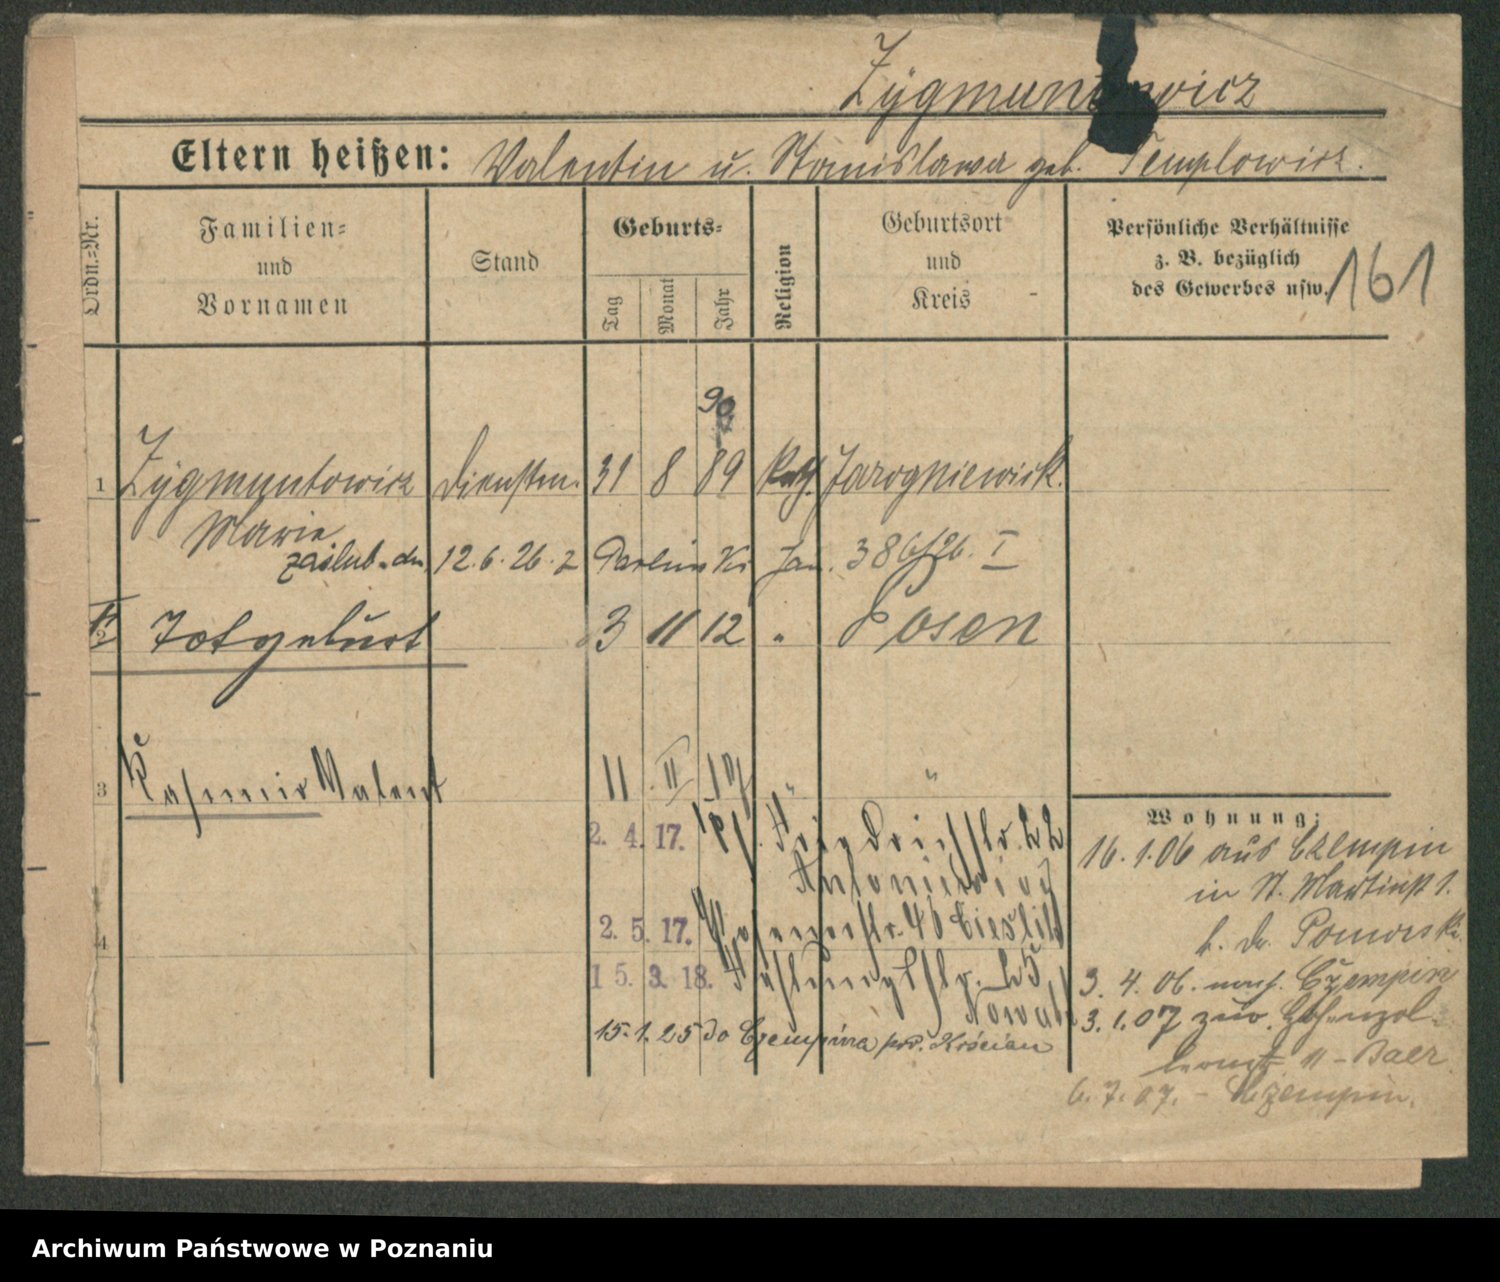 Zygmuntowicz
Eltern heißen: Valentin u. Stanislawa geb. Templowicz.
Ordn.=Nr.
Familien=
und
Vornamen
Stand
Geburts=
Tag
Monat
Jahr
Religion
Geburtsort
und
Kreis
Persönliche Verhältnisse
z. B. bezüglich
des Gewerbes usw.
161
90
1 Zygmuntowicz Dienstm. 31 8 89 kath. Jarogniewick.
Marie
zaślub. dn. 12.6.26. z Pawlinski Jan. 386/26. I
2 Totgeburt 3 11 12 " Posen
3 Kasimir Valent 11 II 17 " "
2. 4. 17. 22
2. 5. 17. 46 Cieslik
4
15. 3. 18. 25
Nowak
15.1.25 do Czempina pow. Kościan
Wohnung:
16.1.06 aus Czempin
in St. Martinst 1.
b. Dr. Pomorski
3. 4. 06. nach Czempin
3.1.07 zur. Hohenzol-
11 - Baer
6.7.07. - Czempin.
Archiwum Państwowe w Poznaniu